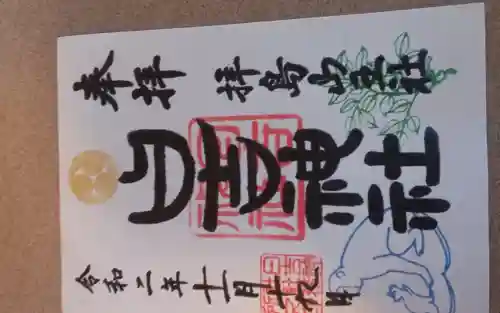 奉拝 拝島山王社
日吉神社
令和二年十一月十九日